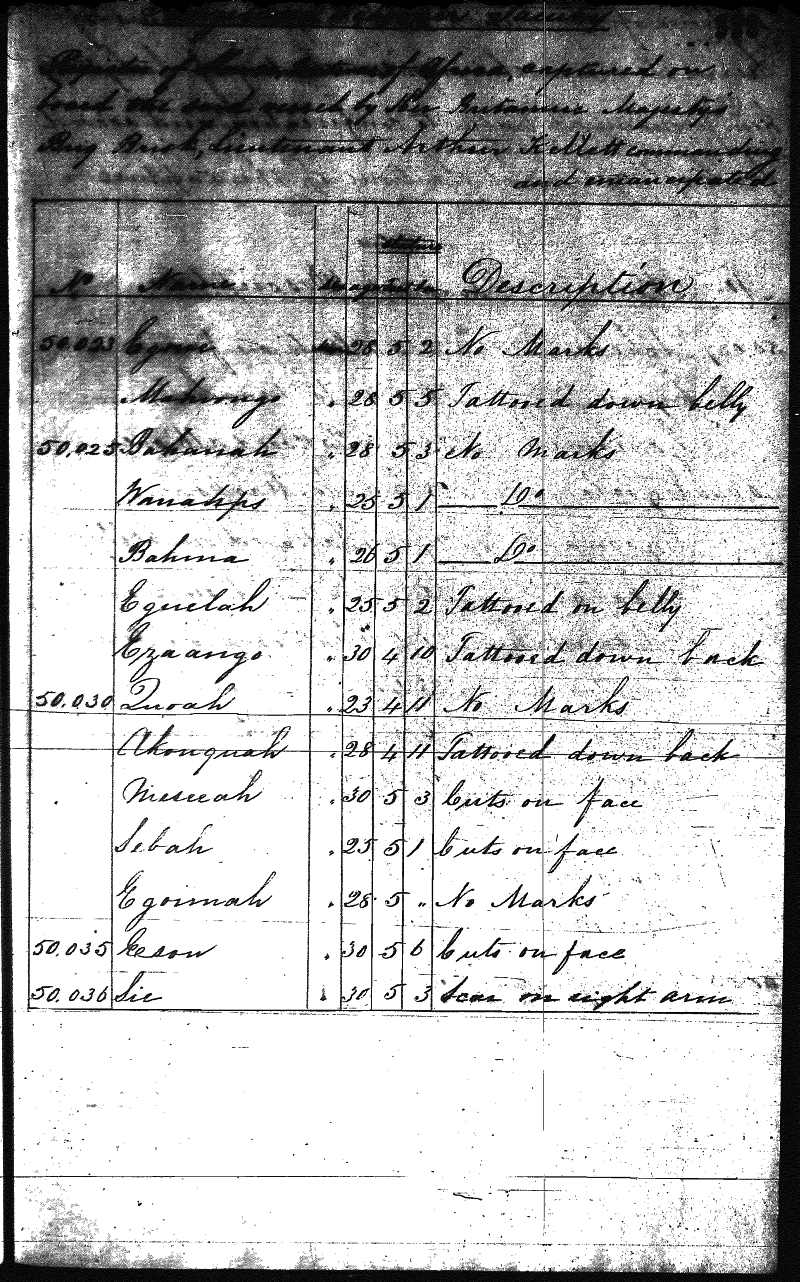 Register of Slaves, Natives of Africa, captured on
board the said vessel by Her Britannic Majesty's
Brig Brisk, Lieutenant Arthur Kellett commanding
and emancipated
Stature
No Name Sex age feet in Description
50.023 28 5 2 No Marks
Mahvongo " 28 5 5 Tattooed down belly
50.025 Bahanah " 28 5 3 No Marks
" 25 5 1 Do
Bahma " 26 5 1 Do
Eguelah " 25 5 2 Tattooed on belly
Ezaango " 30 4 10 Tattooed down back
50.030 Quoah " 23 4 11 No Marks
Akonquah " 28 4 11 Tattooed down back
Meseeah " 30 5 3 Cuts on face
Sebah " 25 5 1 Cuts on face
Egoimah " 28 5 " No Marks
50.035 Eson " 30 5 6 Cuts on face
50.036 Sie " 30 5 3 Scar on right arm